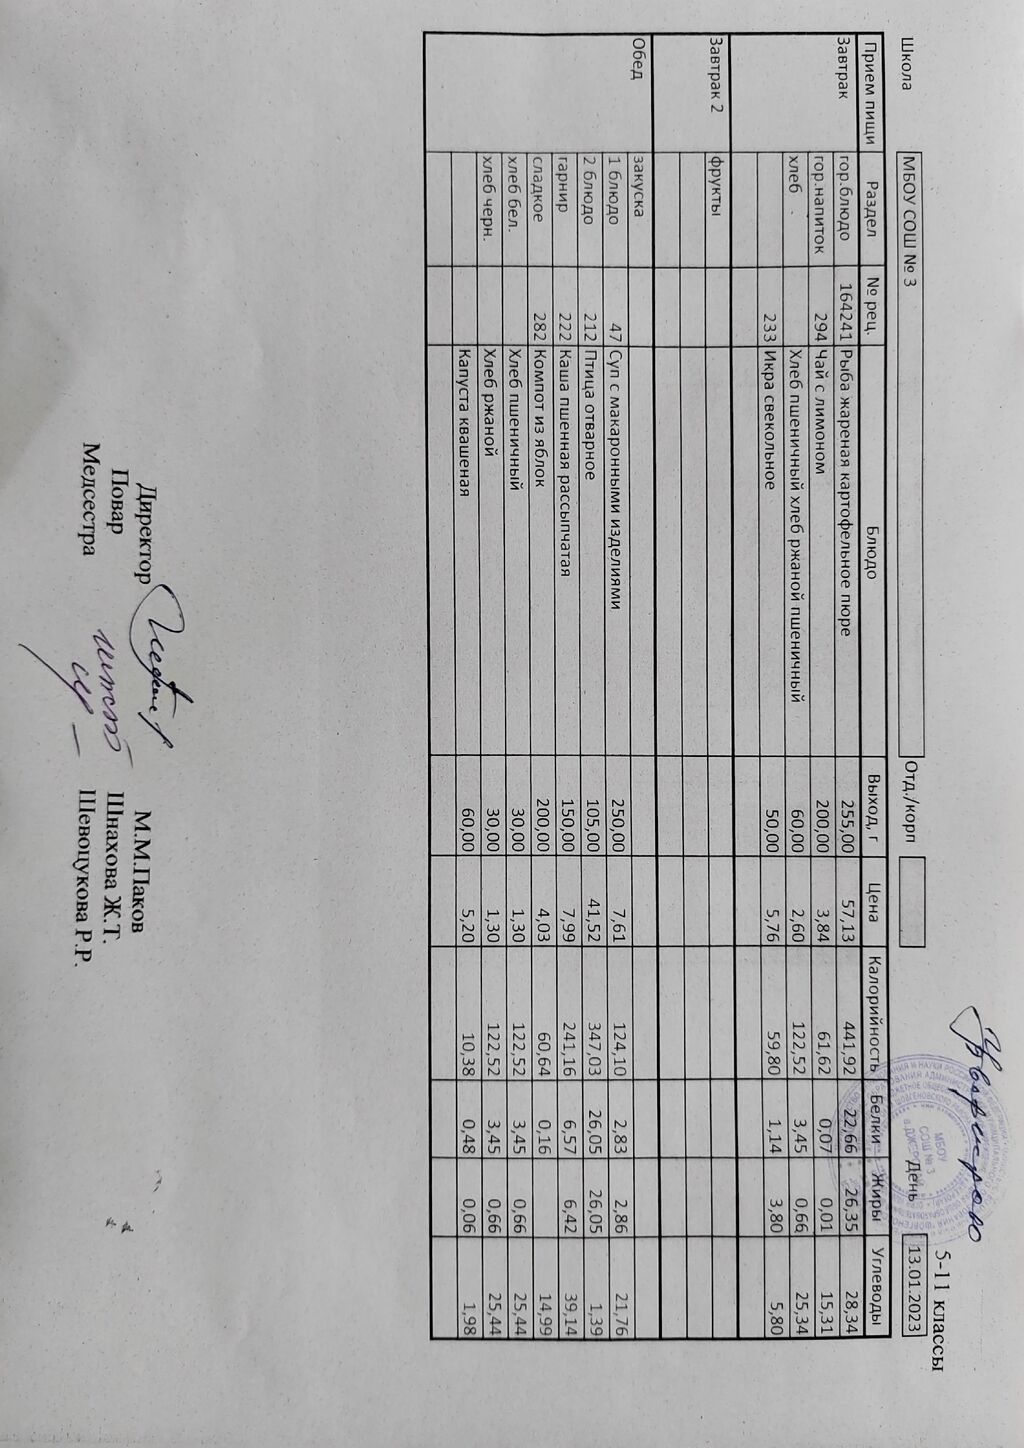 5-11 классы
Школа МБОУ СОШ № 3 Отд./корп День 13.01.2023
Прием пищи Раздел № рец. Блюдо Выход, г Цена Калорийность Белки Жиры Углеводы
Завтрак гор.блюдо 164241 Рыба жареная картофельное пюре 255,00 57,13 441,92 22,66 26,35 28,34
гор.напиток 294 Чай с лимоном 200,00 3,84 61,62 0,07 0,01 15,31
хлеб Хлеб пшеничный хлеб ржаной пшеничный 60,00 2,60 122,52 3,45 0,66 25,34
233 Икра свекольное 50,00 5,76 59,80 1,14 3,80 5,80
Завтрак 2 фрукты
Обед закуска
1 блюдо 47 Суп с макаронными изделиями 250,00 7,61 124,10 2,83 2,86 21,76
2 блюдо 212 Птица отварное 105,00 41,52 347,03 26,05 26,05 1,39
гарнир 222 Каша пшенная рассыпчатая 150,00 7,99 241,16 6,57 6,42 39,14
сладкое 282 Компот из яблок 200,00 4,03 60,64 0,16 14,99
хлеб бел. Хлеб пшеничный 30,00 1,30 122,52 3,45 0,66 25,44
хлеб черн. Хлеб ржаной 30,00 1,30 122,52 3,45 0,66 25,44
Капуста квашеная 60,00 5,20 10,38 0,48 0,06 1,98
МБОУ
СОШ № 3
Директор М.М.Паков
Повар Шнахова Ж.Т.
Медсестра Шевоцукова Р.Р.